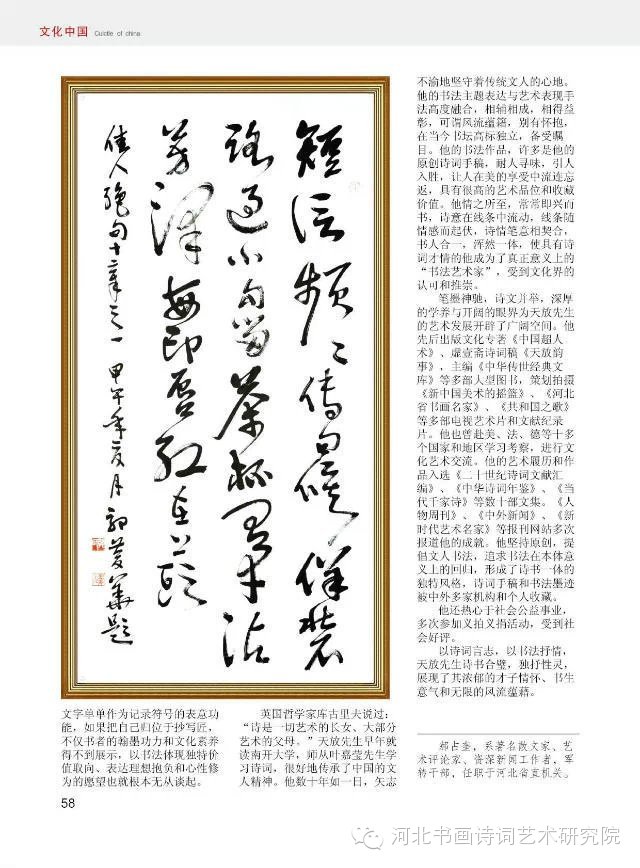 文化中国 Culctle of china
短信频〻傳 佯裝
路过小勾留茶杯 才沾
芳澤每印唇红在上头
佳人绝句十章之一 甲午年夏月 題
文字单单作为记录符号的表意功
能，如果把自己归位于抄写匠，
不仅书者的翰墨功力和文化素养
得不到展示，以书法体现独特价
值取向、表达理想抱负和心性修
为的愿望也就根本无从谈起。
英国哲学家库古里夫说过：
“诗是一切艺术的长女、大部分
艺术的父母。”天放先生早年就
读南开大学，师从叶嘉莹先生学
习诗词，很好地传承了中国的文
人精神。他数十年如一日，矢志
不渝地坚守着传统文人的心地。
他的书法主题表达与艺术表现手
法高度融合，相辅相成，相得益
彰，可谓风流蕴籍，别有怀抱，
在当今书坛高标独立，备受瞩
目。他的书法作品，许多是他的
原创诗词手稿，耐人寻味，引人
入胜，让人在美的享受中流连忘
返，具有很高的艺术品位和收藏
价值。他情之所至，常常即兴而
书，诗意在线条中流动，线条随
情感而起伏，诗情笔意相契合，
书人合一，浑然一体，使具有诗
词才情的他成为了真正意义上的
“书法艺术家”，受到文化界的
认可和推崇。
笔墨神驰，诗文并举，深厚
的学养与开阔的眼界为天放先生
的艺术发展开辟了广阔空间。他
先后出版文化专著《中国超人
术》、虚壹斋诗词稿《天放韵
事》，主编《中华传世经典文
库》等多部大型图书，策划拍摄
《新中国美术的摇篮》、《河北
省书画名家》、《共和国之歌》
等多部电视艺术片和文献纪录
片。他也曾赴美、法、德等十多
个国家和地区学习考察，进行文
化艺术交流。他的艺术履历和作
品入选《二十世纪诗词文献汇
编》、《中华诗词年鉴》、《当
代千家诗》等数十部文集。《人
物周刊》、《中外新闻》、《新
时代艺术名家》等报刊网站多次
报道他的成就。他坚持原创，提
倡文人书法，追求书法在本体意
义上的回归，形成了诗书一体的
独特风格，诗词手稿和书法墨迹
被中外多家机构和个人收藏。
他还热心于社会公益事业，
多次参加义拍义捐活动，受到社
会好评。
以诗词言志，以书法抒情，
天放先生诗书合璧，独抒性灵，
展现了其浓郁的才子情怀、书生
意气和无限的风流蕴藉。
郝占奎，系著名散文家、艺
术评论家、资深新闻工作者，军
转干部，任职于河北省直机关。
58
河北书画诗词艺术研究院